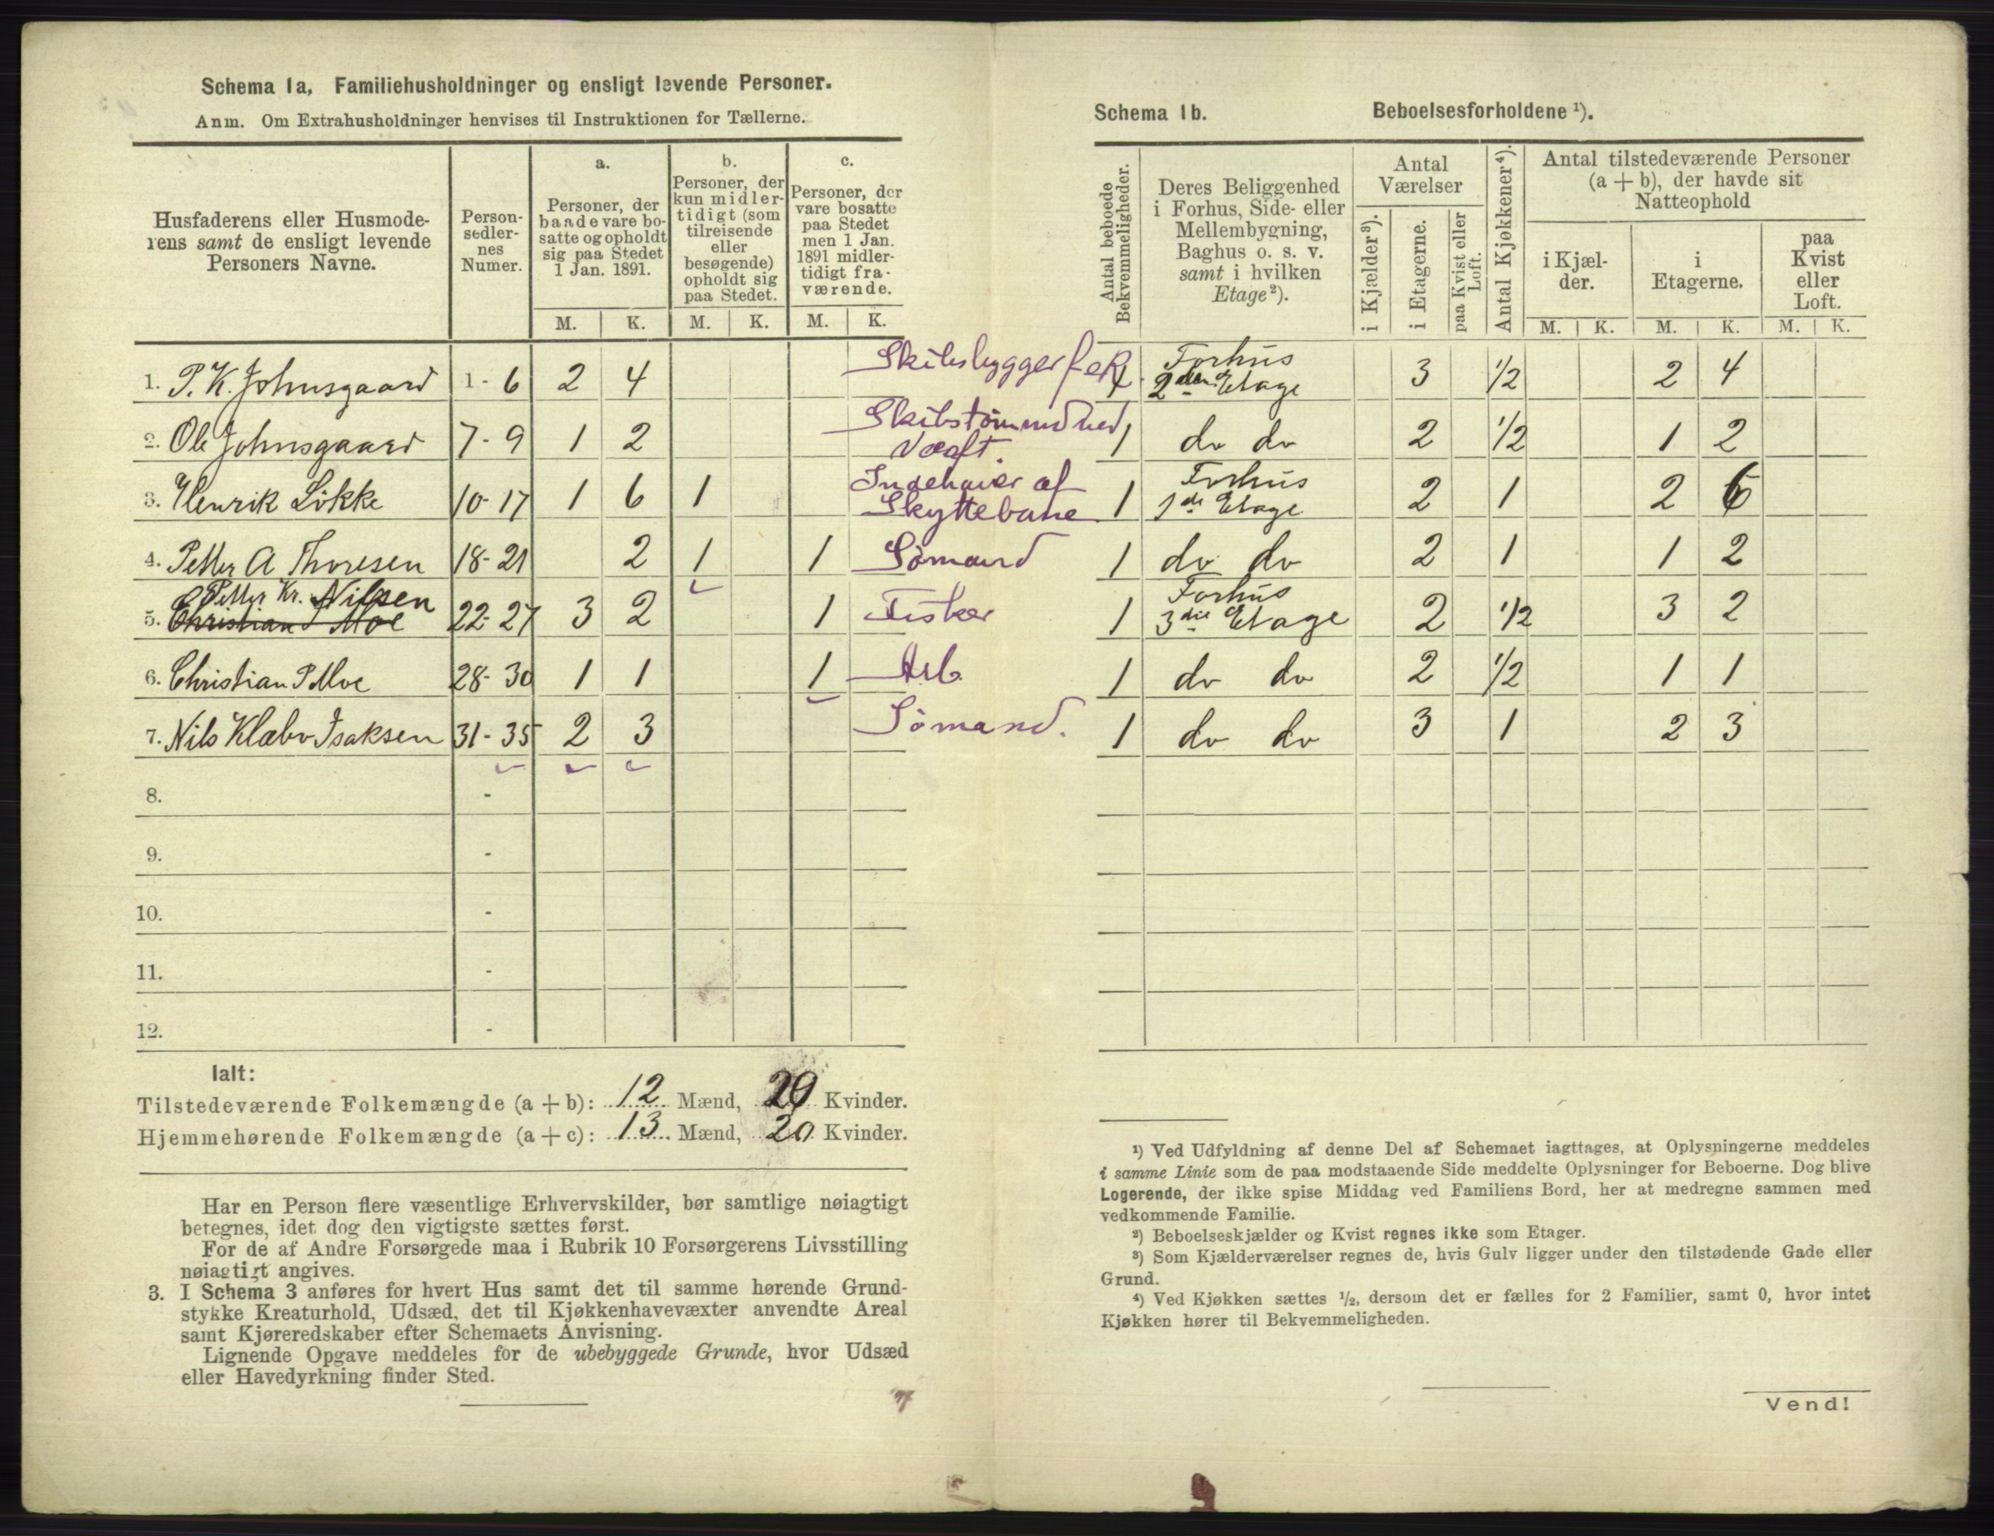 Schema 1a, Familiehusholdninger og ensligt levende Personer.
Anm. Om Extrahusholdninger henvises til Instruktionen for Tællerne.
Husfaderens eller Husmode-
rens samt de ensligt levende
Personers Navne.
Person-
sedler-
nes
Numer.
a.
Personer, der
baade vare bo-
satte og opholdt
sig paa Stedet
1 Jan. 1891.
b.
Personer, der
kun midler-
tidigt (som
tilreisende
eller
besøgende)
opholdt sig
paa Stedet.
c.
Personer, der
vare bosatte
paa Stedet
men 1 Jan.
1891 midler-
tidigt fra-
værende.
M. K. M. K. M. K.
1. P. K. Johnsgaard 1 - 6 2 4 Skibsbygger
2. Ole Johnsgaard 7 - 9 1 2 Skibstømmd
3. Henrik Løkke 10 - 17 1 6 1 Indehaver af
Skyttebane
4. Petter A Thoresen 18 - 21 2 1 1 Sømand
Petter Kr. Nilsen
5. Christian P Moe 22 - 27 3 2 1 Fisker
6. Christian P Moe 28 - 30 1 1 1 Arb
7. Nils Klæbo Isaksen 31 - 35 2 3 Sømand.
8. -
9. -
10. -
11. -
12. -
Ialt:
Tilstedeværende Folkemængde (a + b): 12 Mænd, 20 Kvinder.
Hjemmehørende Folkemængde (a + c): 13 Mænd, 20 Kvinder.
Har en Person flere væsentlige Erhvervskilder, bør samtlige nøiagtigt
betegnes, idet dog den vigtigste sættes først.
For de af Andre Forsørgede maa i Rubrik 10 Forsørgerens Livsstilling
nøiagtigt angives.
3. I Schema 3 anføres for hvert Hus samt det til samme hørende Grund-
stykke Kreaturhold, Udsæd, det til Kjøkkenhavevæxter anvendte Areal
samt Kjøreredskaber efter Schemaets Anvisning.
Lignende Opgave meddeles for de ubebyggede Grunde, hvor Udsæd
eller Havedyrkning finder Sted.
Schema 1b. Beboelsesforholdene ¹).
Antal beboede
Bekvemmeligheder.
Deres Beliggenhed
i Forhus, Side- eller
Mellembygning,
Baghus o. s. v.
samt i hvilken
Etage ²).
Antal
Værelser
i Kjælder ³).
i Etagerne.
paa Kvist eller
Loft.
Antal Kjøkkener ⁴).
Antal tilstedeværende Personer
(a + b), der havde sit
Natteophold
i Kjæl-
der.
i
Etagerne.
paa
Kvist
eller
Loft.
M. K. M. K. M. K.
Forhus
1 2den Etage 3 1/2 2 4
1 do do 2 1/2 1 2
Forhus
1 1ste Etage 2 1 2 6
1 do do 2 1 1 2
Forhus
1 3die Etage 2 1/2 3 2
1 do do 2 1/2 1 1
1 do do 3 1 2 3
¹) Ved Udfyldning af denne Del af Schemaet iagttages, at Oplysningerne meddeles
i samme Linie som de paa modstaaende Side meddelte Oplysninger for Beboerne. Dog blive
Logerende, der ikke spise Middag ved Familiens Bord, her at medregne sammen med
vedkommende Familie.
²) Beboelseskjælder og Kvist regnes ikke som Etager.
³) Som Kjælderværelser regnes de, hvis Gulv ligger under den tilstødende Gade eller
Grund.
⁴) Ved Kjøkken sættes ½, dersom det er fælles for 2 Familier, samt 0, hvor intet
Kjøkken hører til Bekvemmeligheden.
Vend!